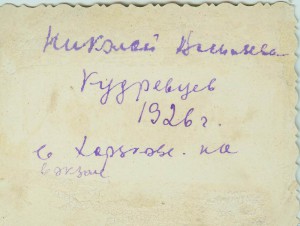 Николай Васильев
Кудревцев
1926 г.
в Харькове. на
вокзал